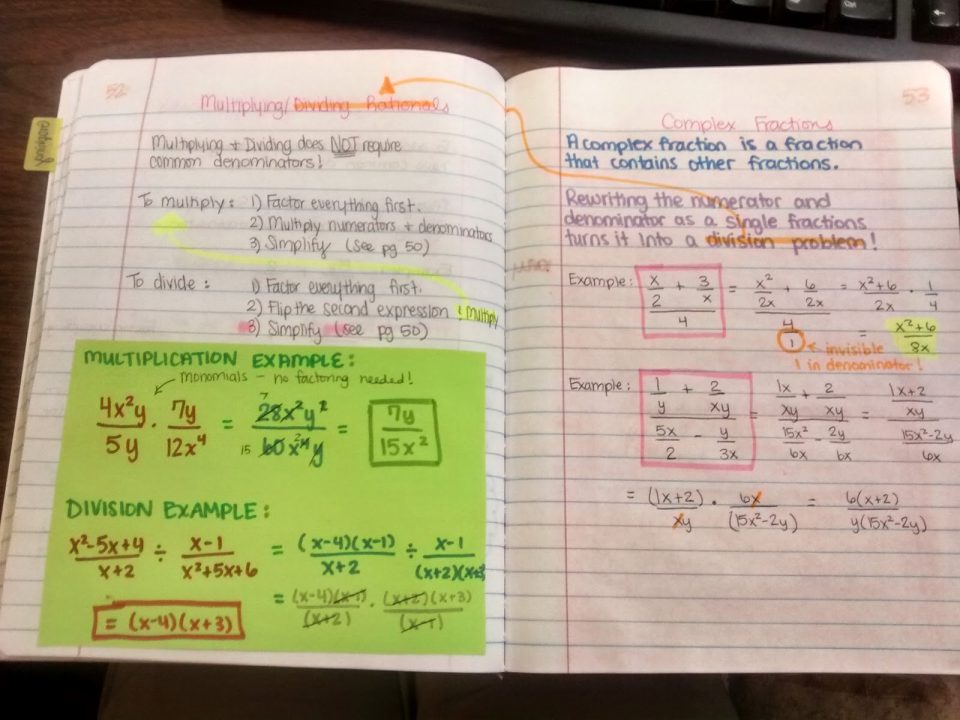 52
Multiplying/Dividing Rationals
Multiplying + Dividing does NOT require
common denominators!
To multiply: 1) Factor everything first.
2) Multiply numerators + denominators
3) Simplify (see pg 50)
To divide: 1) Factor everything first.
2) Flip the second expression & multiply
3) Simplify (see pg 50)
MULTIPLICATION EXAMPLE:
monomials - no factoring needed!
4x²y/5y · 7y/12x⁴ = 28x²y²/60x⁴y = 7y/15x²
7
15
2
DIVISION EXAMPLE:
x²-5x+4/x+2 ÷ x-1/x²+5x+6 = (x-4)(x-1)/x+2 ÷ x-1/(x+2)(x+3)
= (x-4)(x-1)/(x+2) · (x+2)(x+3)/(x-1)
= (x-4)(x+3)
53
Complex Fractions
A complex fraction is a fraction
that contains other fractions.
Rewriting the numerator and
denominator as a single fractions
turns it into a division problem!
Example: (x/2 + 3/x)/4 = (x²/2x + 6/2x)/(4/1) = x²+6/2x · 1/4
= x²+6/8x
← invisible
1 in denominator!
Example: (1/y + 2/xy)/(5x/2 - y/3x) = (1x/xy + 2/xy)/(15x²/6x - 2y/6x) = (1x+2/xy)/(15x²-2y/6x)
= (1x+2)/xy · 6x/(15x²-2y) = 6(x+2)/y(15x²-2y)